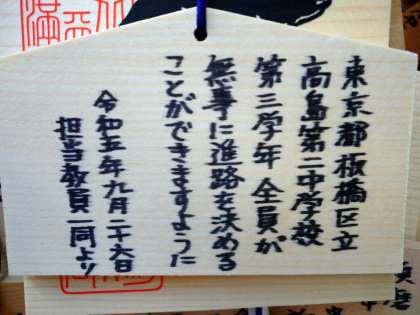 東京都板橋区立
高島第二中学校
第三学年 全員が
無事に進路を決める
ことができますように
令和五年九月二十六日
担当教員一同より